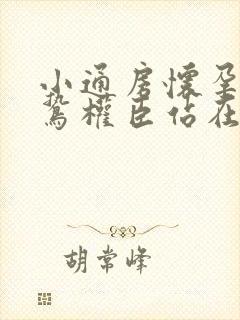 小通房懷孕
鷙權臣佔在
胡常峰